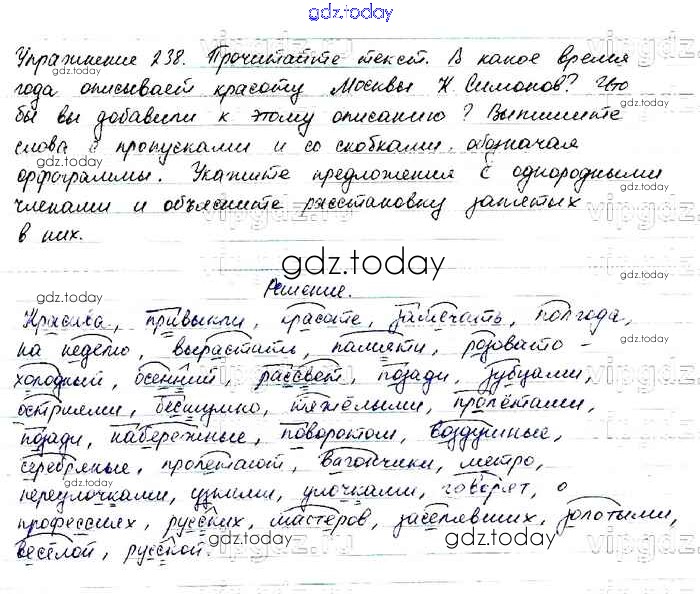 gdz.today
Упражнение 238. Прочитайте текст. В какое время
года описывает красоту Москвы К. Симонов? Что
бы вы добавили к этому описанию? Выпишите
слова с пропусками и со скобками, обозначая
орфограммы. Укажите предложения с однородными
членами и объясните расстановку запятых
в них.
gdz.today
Решение.
Красива, привыкли, красоте, замечать, полгода,
на неделю, вырастить, памяти, розовато-
холодный, осенний, рассвет, позади, зубцами,
остриями, бесшумно, тяжёлыми, пролётами,
позади, набережные, поворотом, воздушные,
серебряные, пролетают, вагончики, метро,
переулочками, узкими, улочками, говорят, о
профессиях, русских, мастеров, заселявших, золотыми,
весёлой, русской.